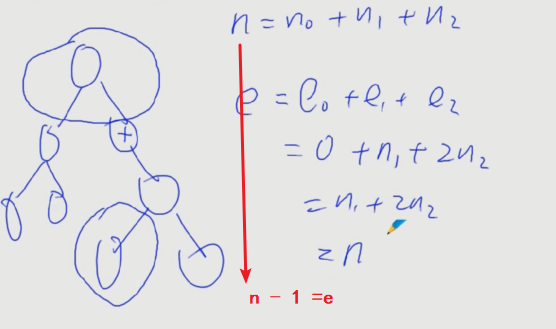 n = n₀ + n₁ + n₂
e = e₀ + e₁ + e₂
= 0 + n₁ + 2n₂
= n₁ + 2n₂
= n
+
n - 1 =e